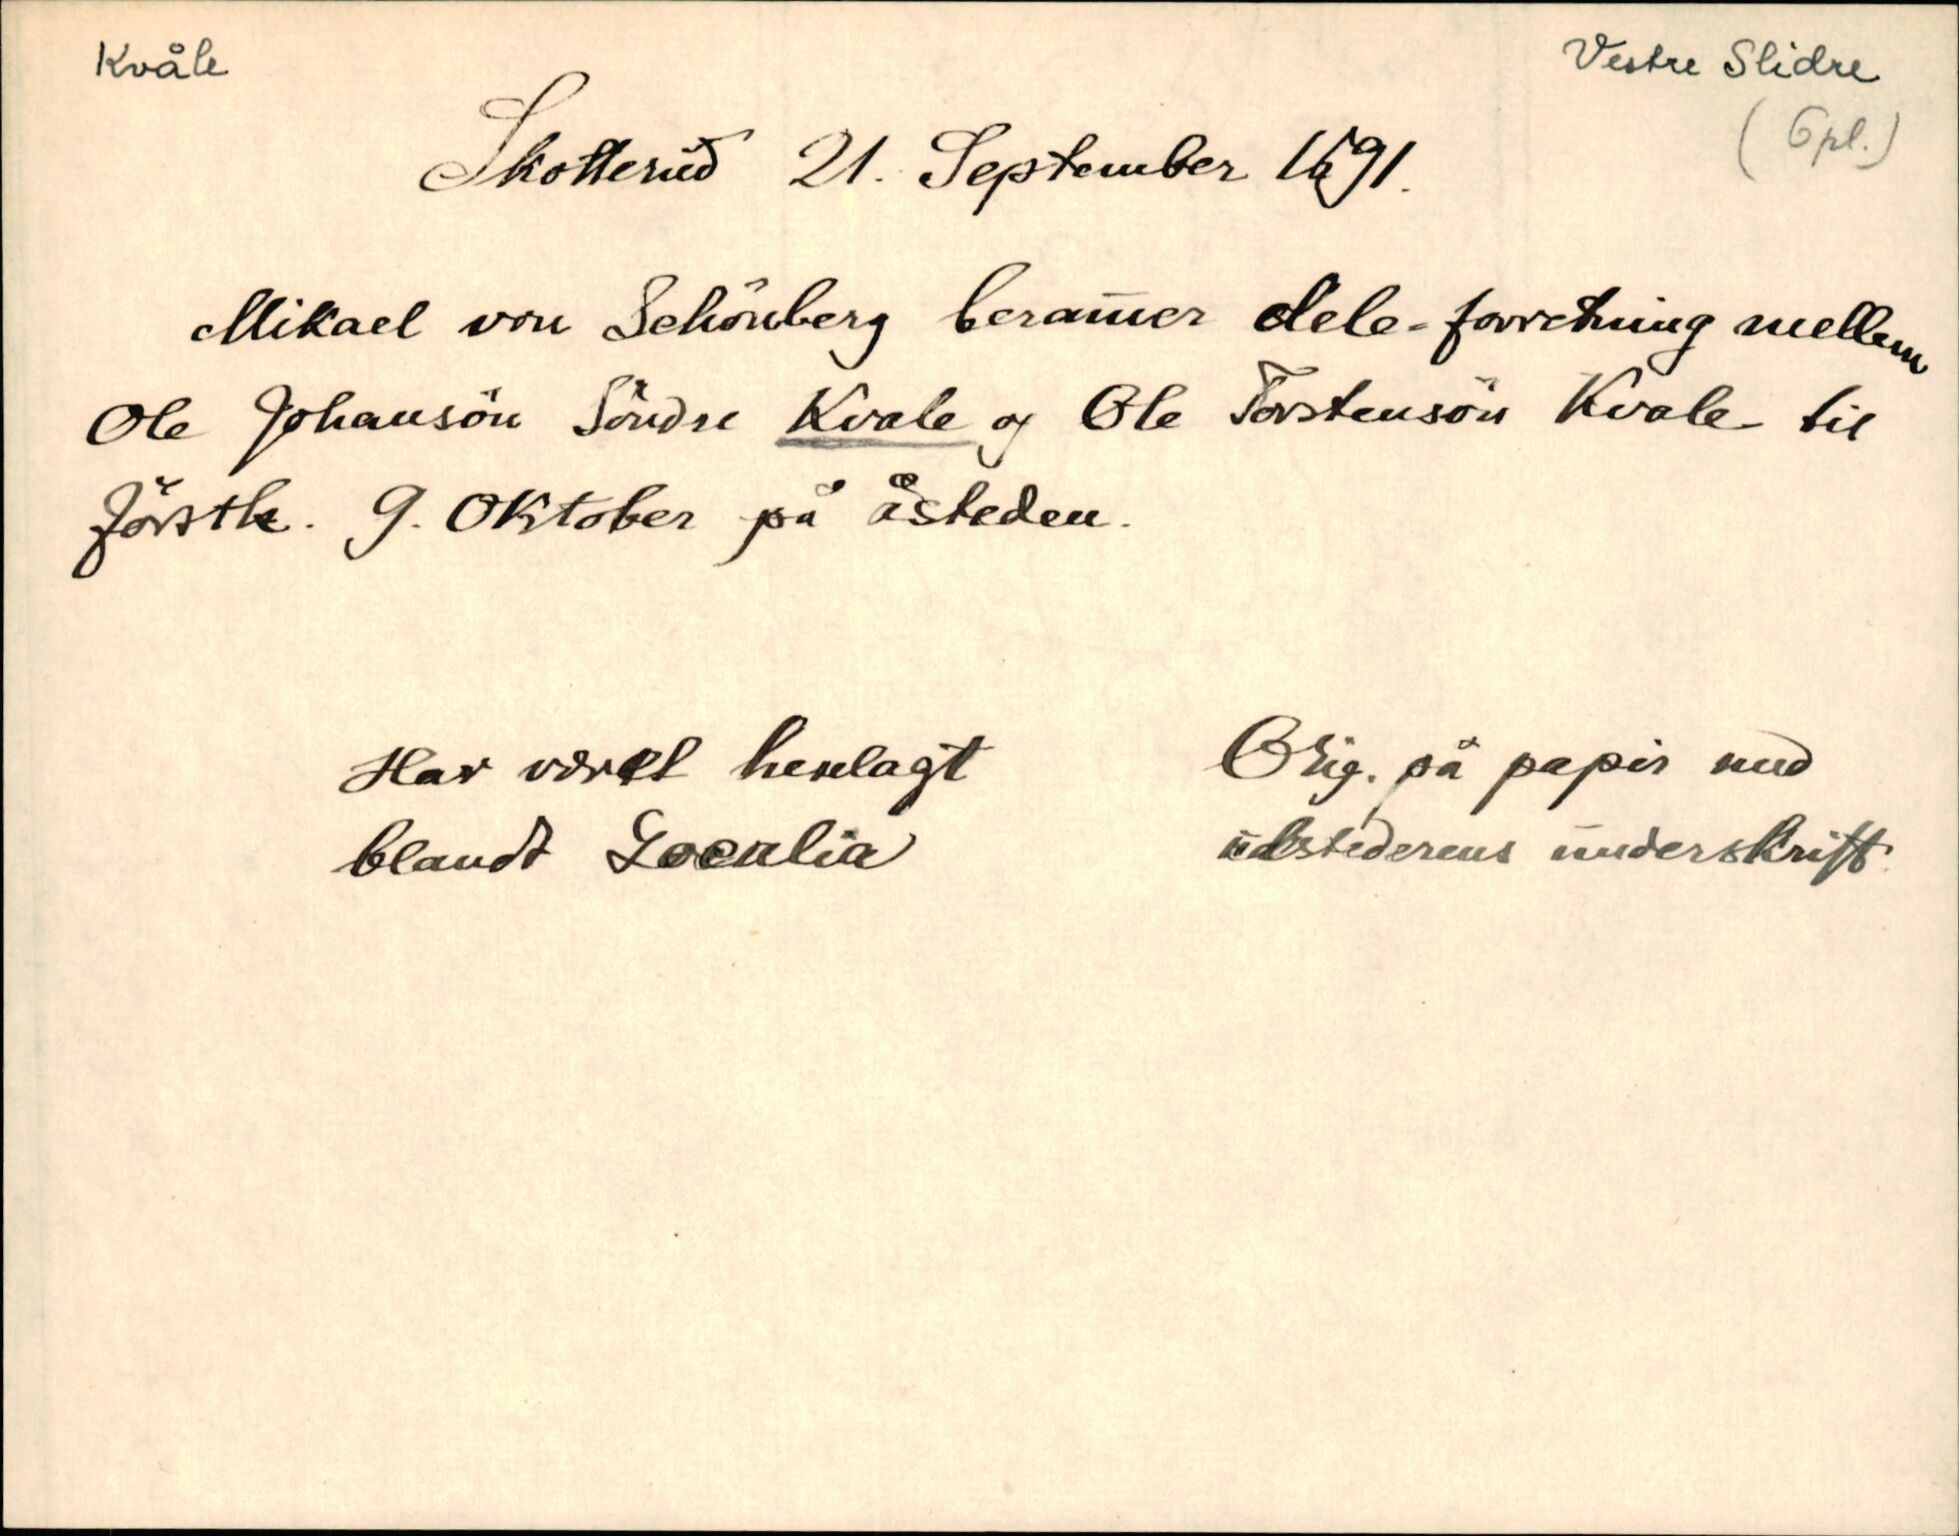 Kvåle
Vestre Slidre
(Gpl.)
Skotterud 21. September 1691.
Mikael von Schönberg beram̅er dele-forretning mellem
Ole Johansön Söndre Kvale og Ole Torstensön Kvale til
förstk. 9. Oktober på åsteden.
Har været henlagt
blandt Localia
Orig. på papir med
udstederens underskrift.